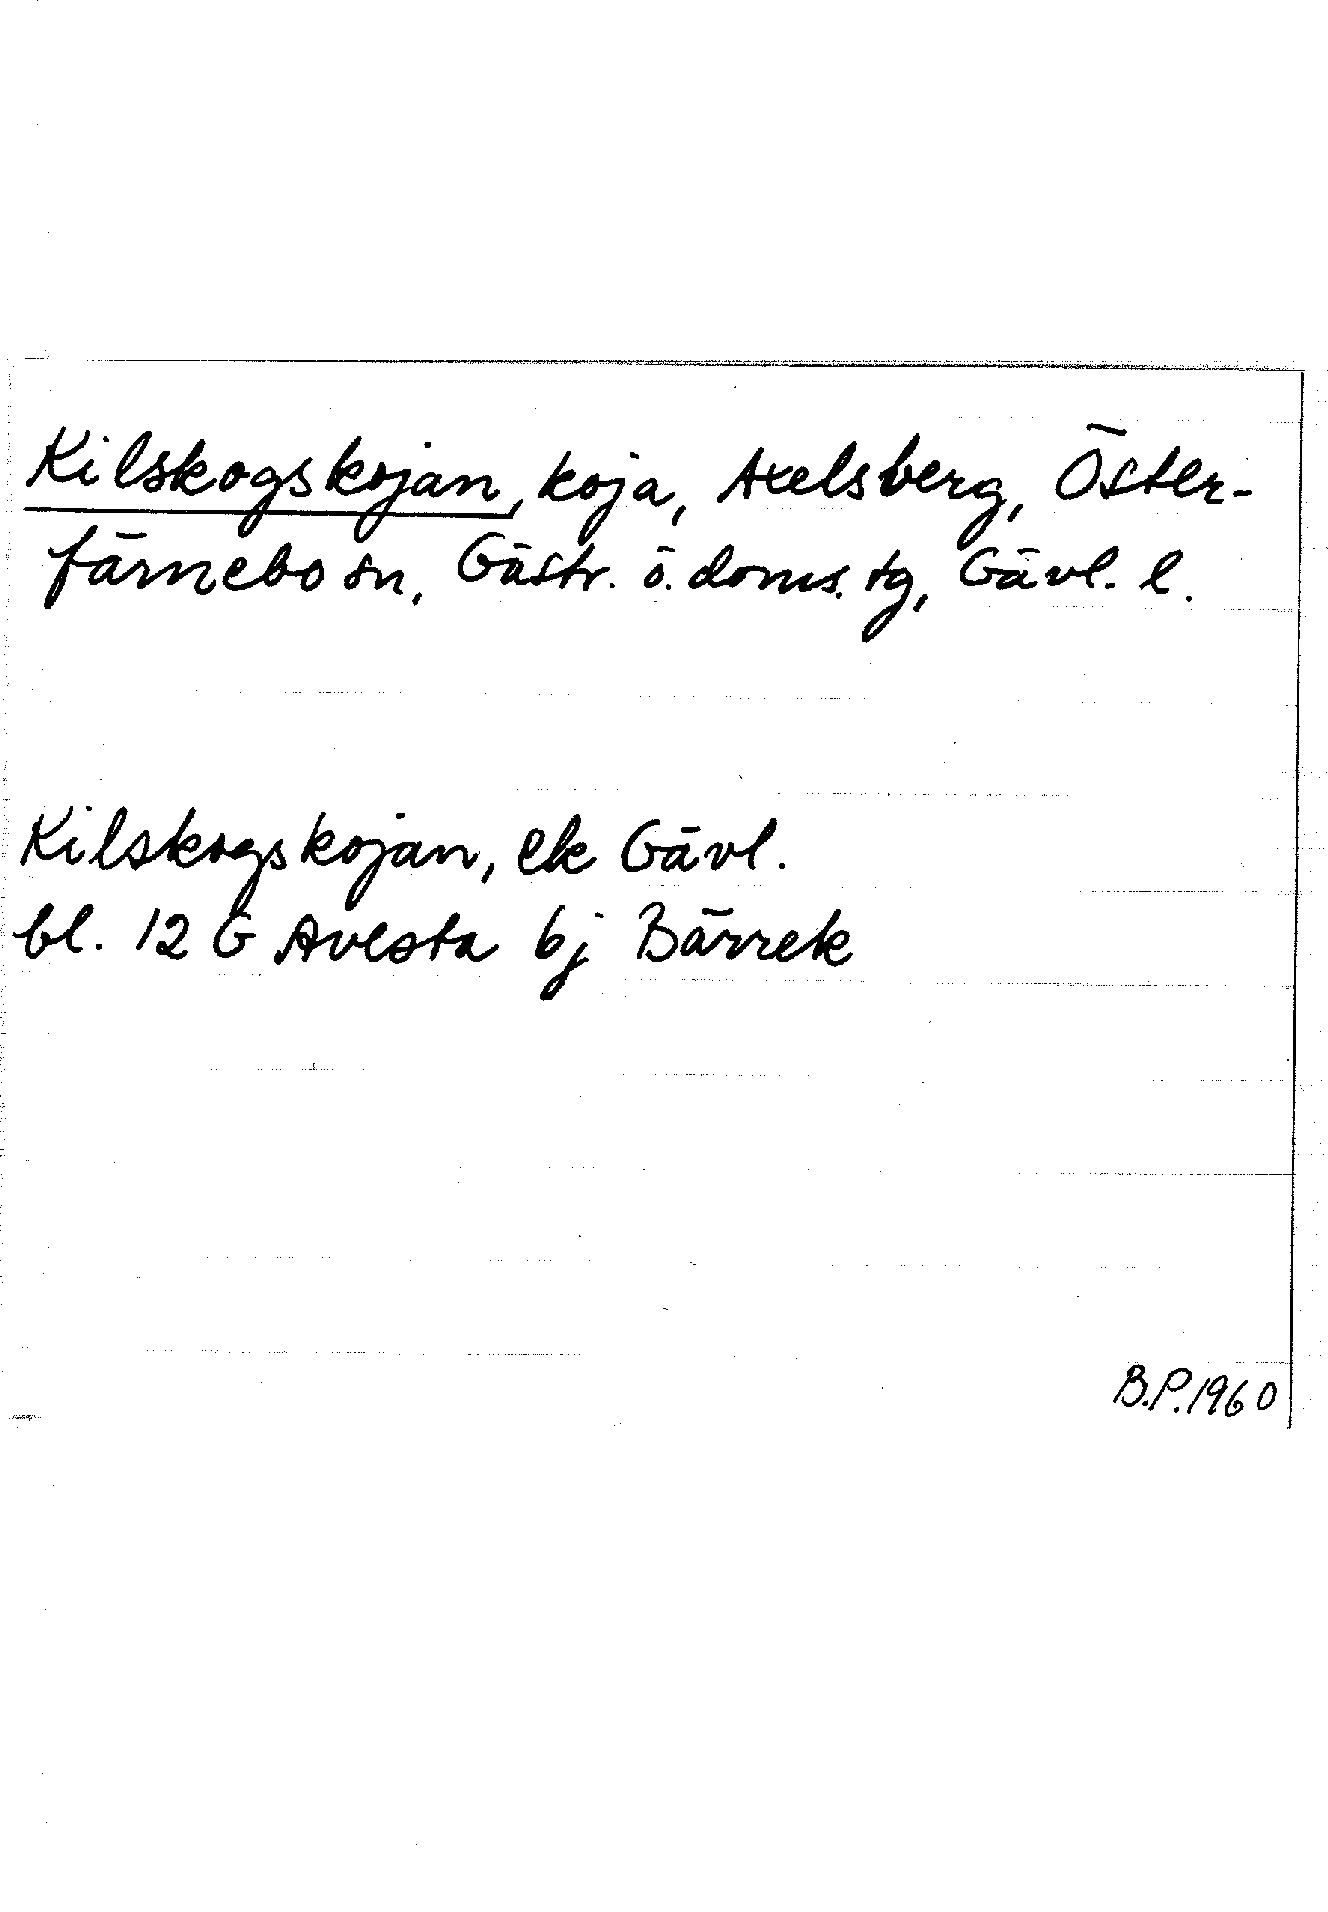 Kilskogskojan, koja, Axelsberg, Öster-
färnebo sn, Gästr. ö. doms. tg, Gävl. l.
Kilskogskojan, ek Gävl.
bl. 12 G Avesta 6j Bärrek
B.P. 1960